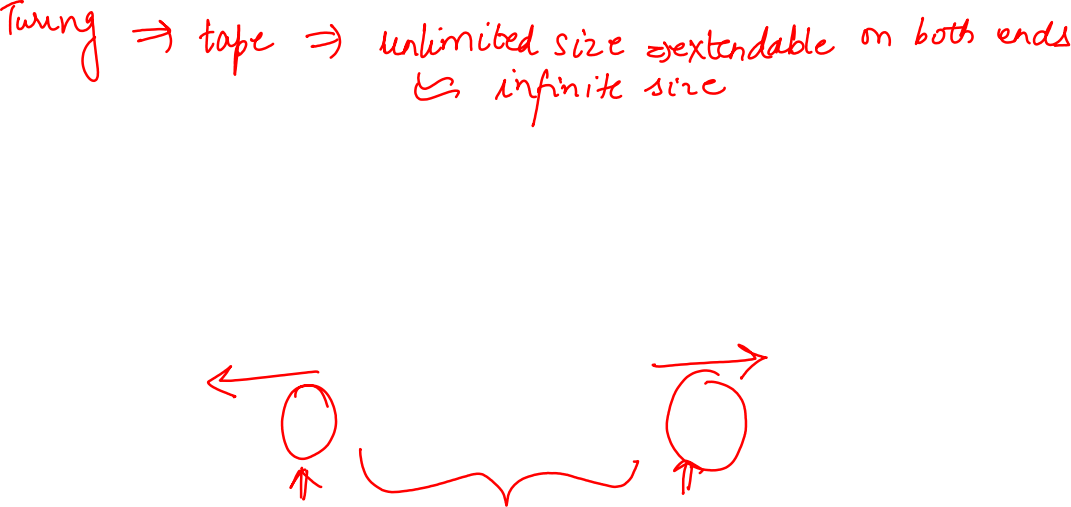 Turing ⇒ tape ⇒ unlimited size ⇒ extendable on both ends
infinite size